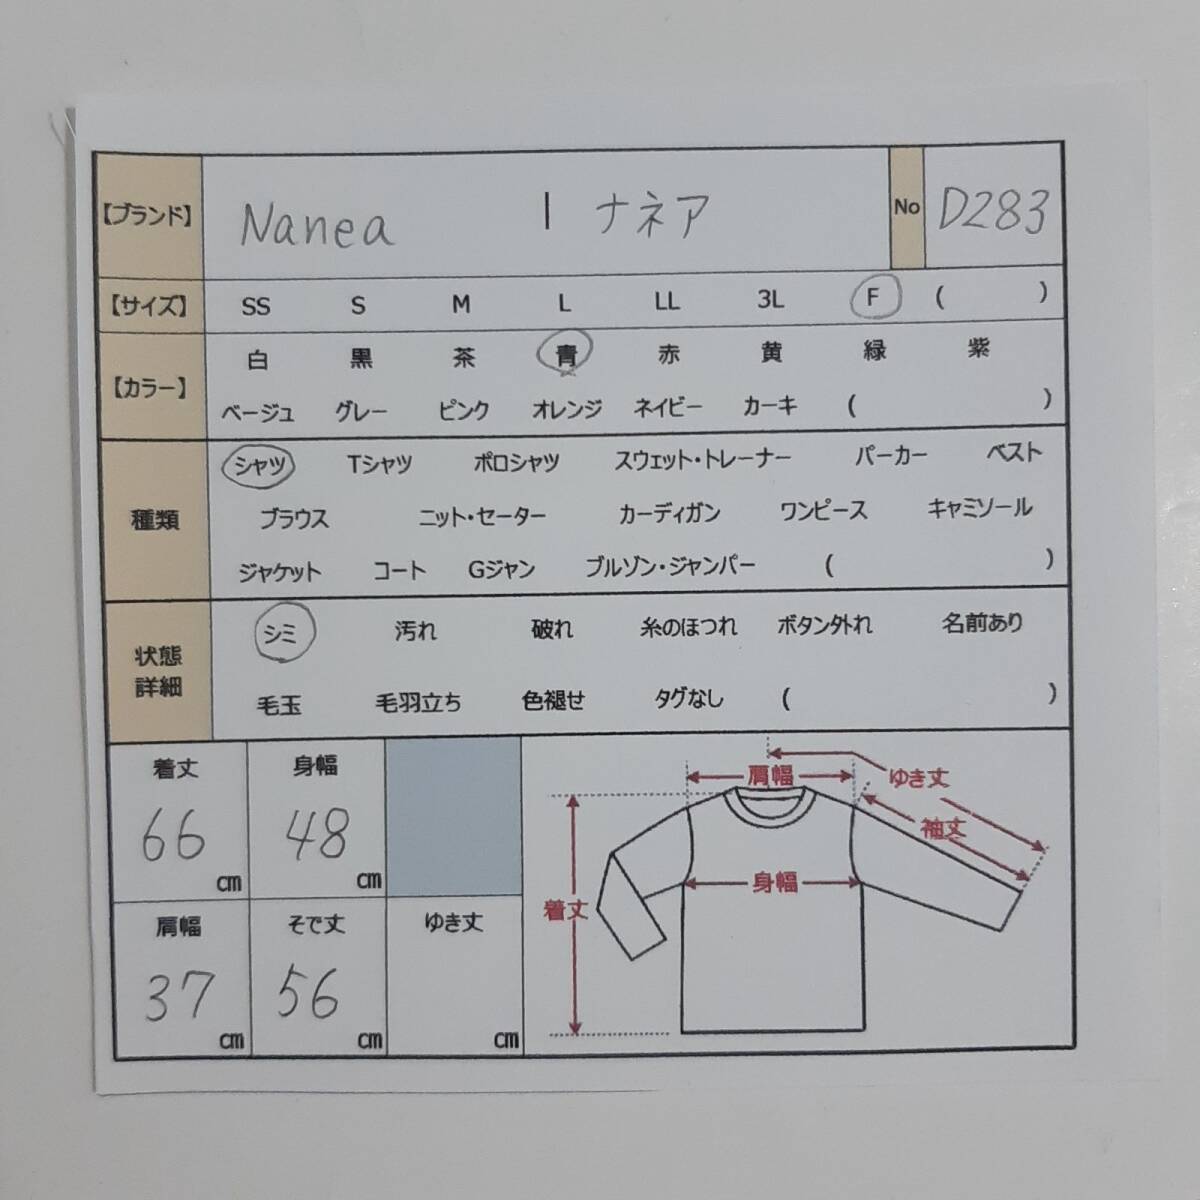 【ブランド】 Nanea | ナネア No D283
【サイズ】 SS S M L LL 3L F ( )
【カラー】 白 黒 茶 青 赤 黄 緑 紫
ベージュ グレー ピンク オレンジ ネイビー カーキ ( )
種類 シャツ Tシャツ ポロシャツ スウェット・トレーナー パーカー ベスト
ブラウス ニット・セーター カーディガン ワンピース キャミソール
ジャケット コート Gジャン ブルゾン・ジャンパー ( )
状態
詳細
シミ 汚れ 破れ 糸のほつれ ボタン外れ 名前あり
毛玉 毛羽立ち 色褪せ タグなし ( )
着丈 身幅
66 cm 48 cm
肩幅 そで丈 ゆき丈
37 cm 56 cm cm
肩幅 ゆき丈
袖丈
身幅
着丈